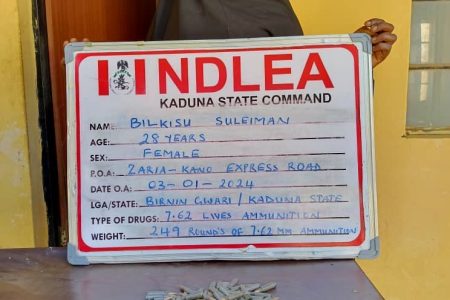 NDLEA
KADUNA STATE COMMAND
NAME: BILKISU SULEIMAN
AGE: 28 YEARS
SEX: FEMALE
P.O.A: ZARIA-KANO EXPRESS ROAD
DATE O.A: 03-01-2024
LGA/STATE: BIRNIN GWARI / KADUNA STATE
TYPE OF DRUGS: 7.62 LIVES AMMUNITION
WEIGHT: 249 ROUND'S OF 7.62 MM AMMUNITION